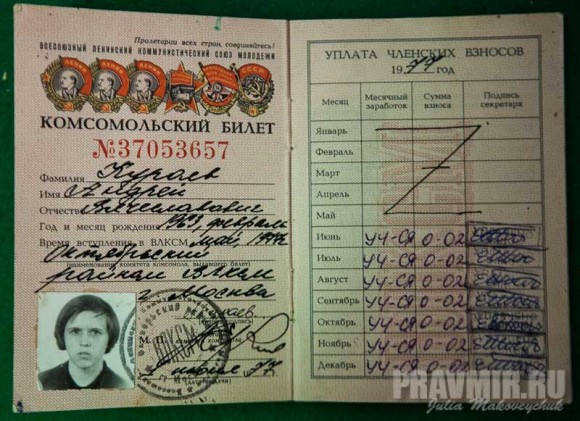 Пролетарии всех стран, соединяйтесь!
ВСЕСОЮЗНЫЙ ЛЕНИНСКИЙ КОММУНИСТИЧЕСКИЙ СОЮЗ МОЛОДЕЖИ
КОМСОМОЛЬСКИЙ БИЛЕТ
№37053657
Фамилия Кураев
Имя Андрей
Отчество Вячеславович
Год и месяц рождения 1963, февраль
Время вступления в ВЛКСМ май, 1977
Октябрьский
(наименование комитета комсомола, выдавшего билет)
райком ВЛКСМ
г. Москва
М. П.
июнь 77
УПЛАТА ЧЛЕНСКИХ ВЗНОСОВ
1977 год
Месяц Месячный заработок Сумма взноса Подпись секретаря
Январь
Февраль
Март
Апрель
Май
Июнь уч-ся 0-02
Июль уч-ся 0-02
Август уч-ся 0-02
Сентябрь уч-ся 0-02
Октябрь уч-ся 0-02
Ноябрь уч-ся 0-02
Декабрь уч-ся 0-02
PRAVMIR.RU
Julia Makoveychuk